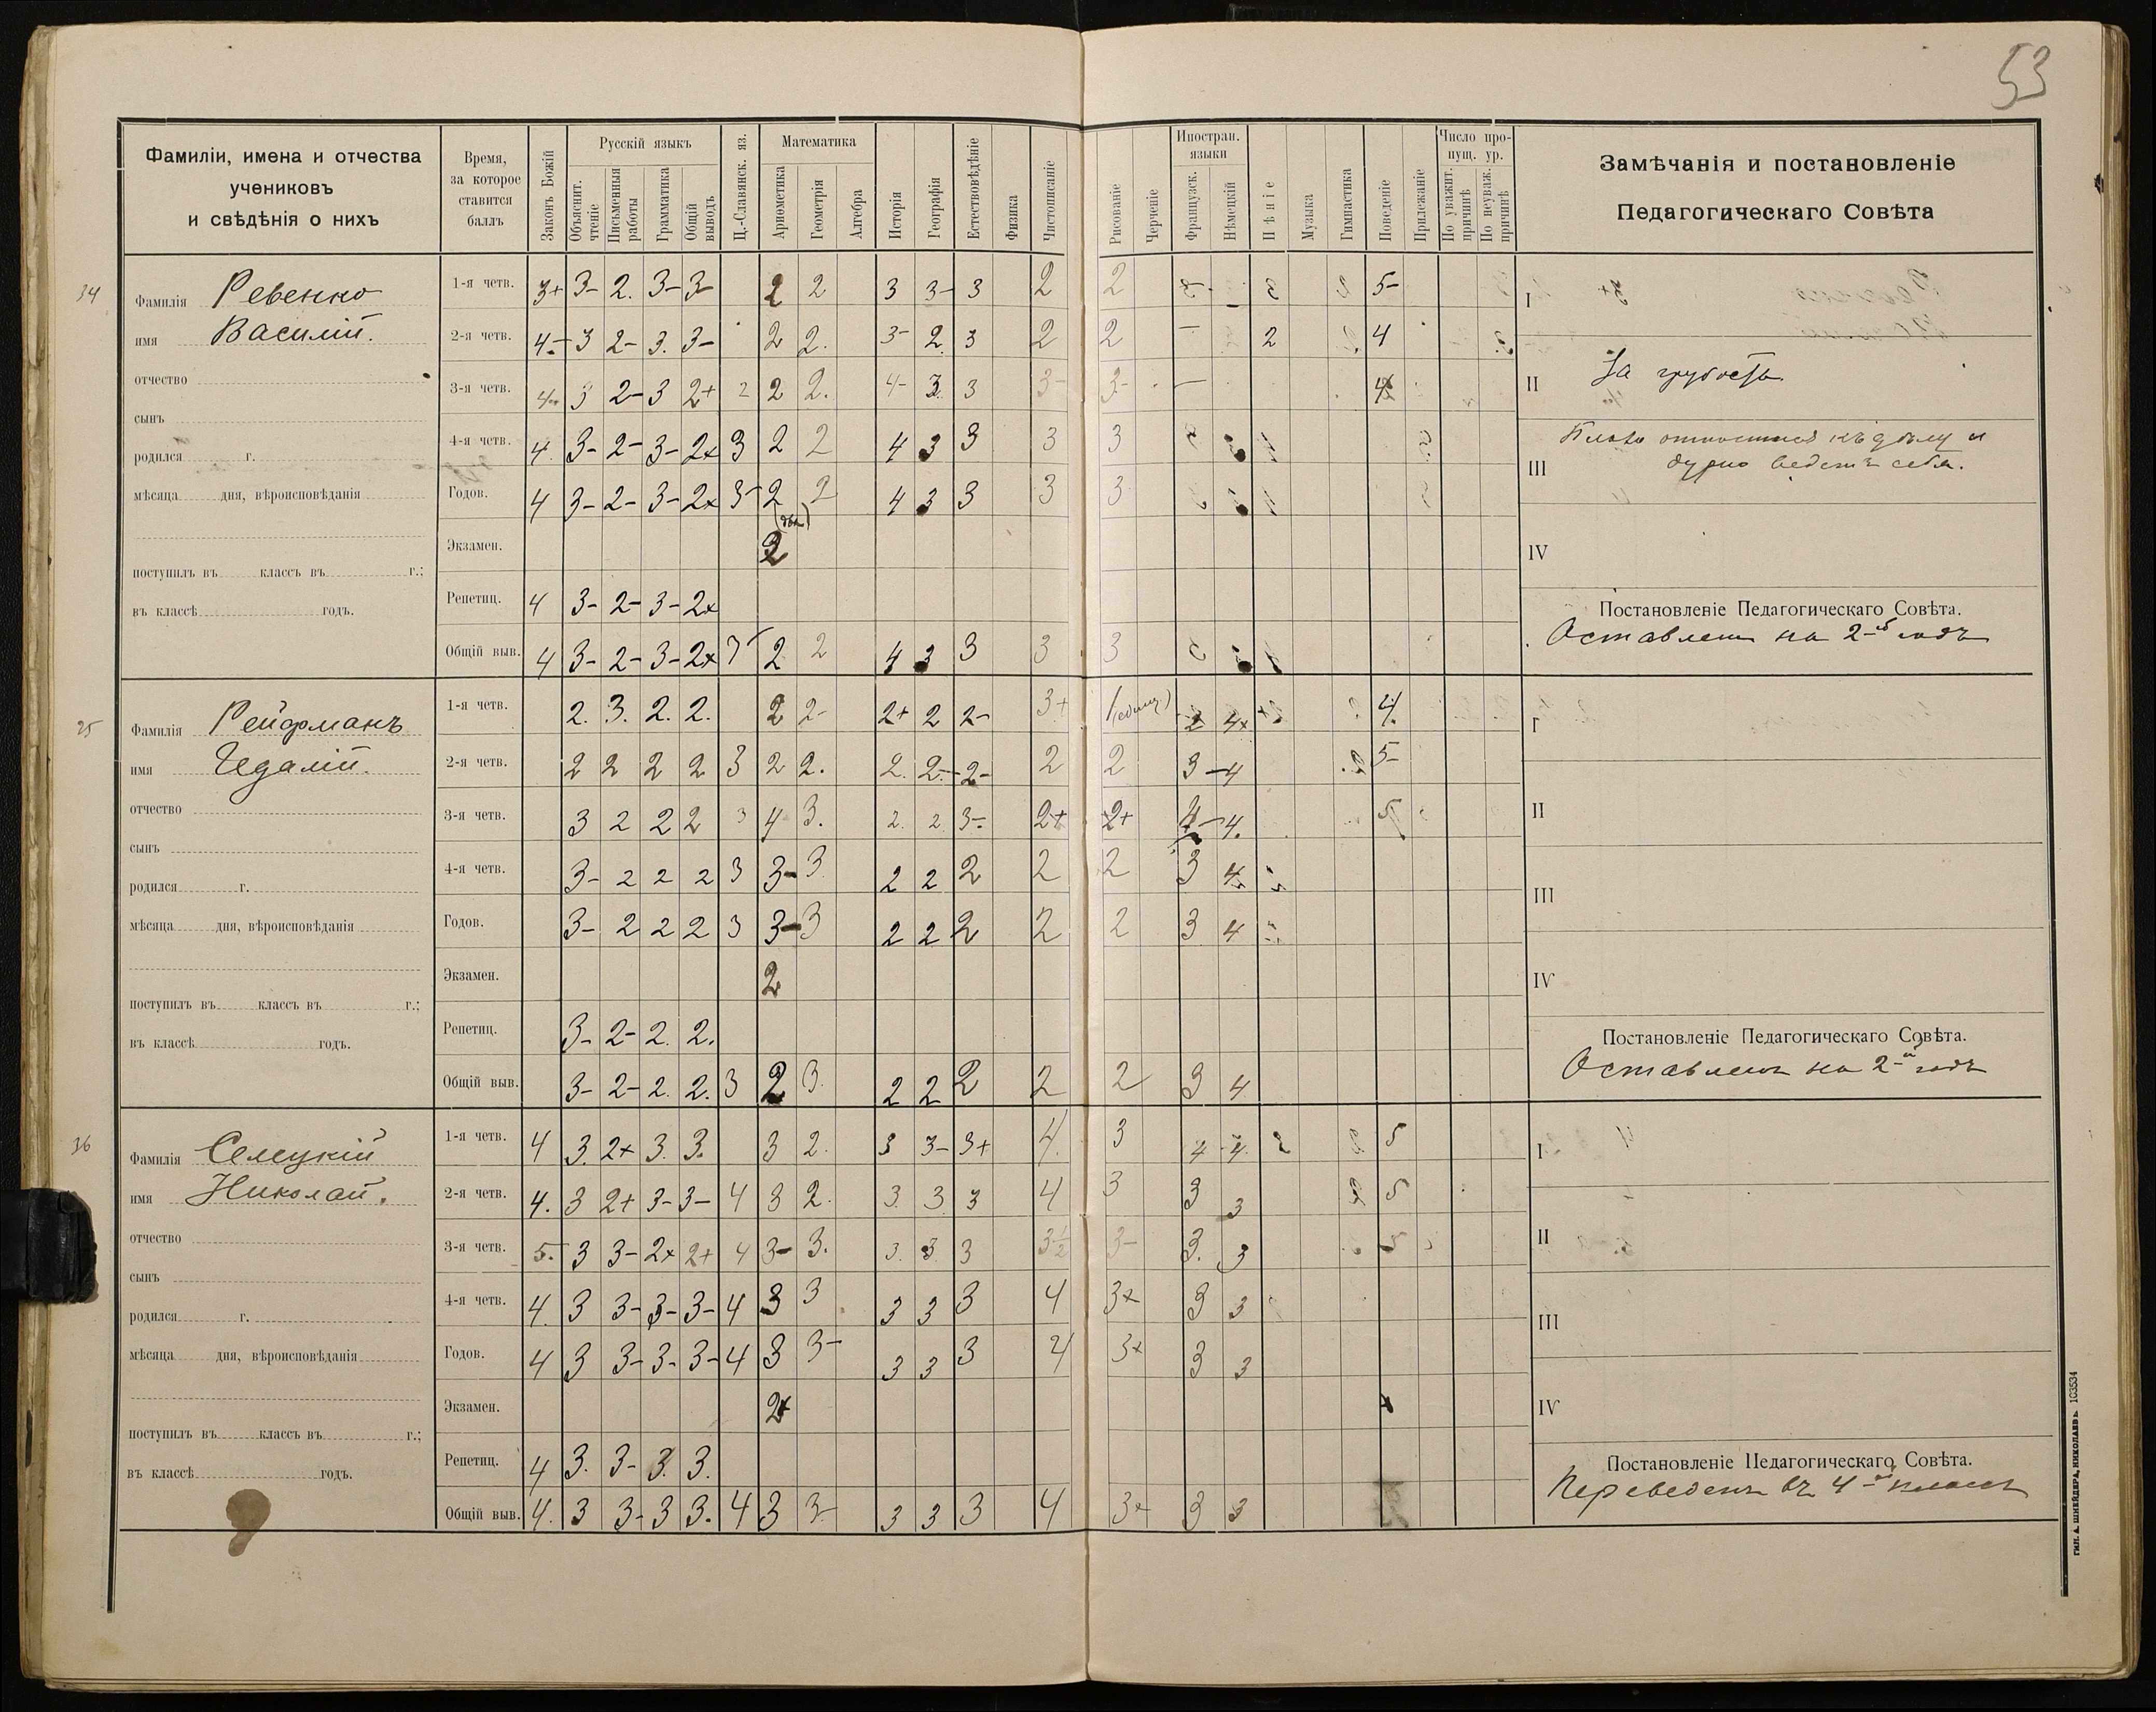 53
Фамиліи, имена и отчества
учениковъ
и свѣдѣнія о нихъ
Время,
за которое
ставится
баллъ
Законъ Божій
Русскій языкъ
Объяснит.
чтеніе
Письменныя
работы
Грамматика
Общій
выводъ
Ц.-Славянск. яз.
Математика
Ариѳметика
Геометрія
Алгебра
Исторія
Географія
Естествовѣдѣніе
Физика
Чистописаніе
Рисованіе
Черченіе
Иностран.
языки
Французск.
Нѣмецкій
Пѣніе
Музыка
Гимнастика
Поведеніе
Прилежаніе
Число про-
пущ. ур.
По уважит.
причинѣ
По неуваж.
причинѣ
Замѣчанія и постановленіе
Педагогическаго Совѣта
34
Фамилія Ревенко
имя Василій.
отчество
сынъ
родился г.
мѣсяца дня, вѣроисповѣданія
поступилъ въ классъ въ г.;
въ классѣ годъ.
1-я четв. 3+ 3- 2. 3- 3- 2 2 3 3- 3 2 2 5-
2-я четв. 4- 3 2- 3. 3- 2 2. 3- 2 3 2 2 2 4
3-я четв. 4- 3 2- 3 2+ 2 2 2. 4- 3 3 3- 3- 4
4-я четв. 4 3- 2- 3- 2+ 3 2 2 4 3 3 3 3
Годов. 4 3- 2- 3- 2+ 3- 2 2 4 3 3 3 3
Экзамен. 2
Репетиц. 4 3- 2- 3- 2+
Общій выв. 4 3- 2- 3- 2+ 3 2 2 4 3 3 3 3
I
II За грубость
III Плохо относится къ дѣлу и
дурно ведетъ себя.
IV
Постановленіе Педагогическаго Совѣта.
Оставленъ на 2-й годъ
Фамилія Рейфманъ
имя Идалій.
отчество
сынъ
родился г.
мѣсяца дня, вѣроисповѣданія
поступилъ въ классъ въ г.;
въ классѣ годъ.
1-я четв. 2. 3. 2. 2. 2 2- 2+ 2 2- 3+ 1 (един) 2 4+ 4.
2-я четв. 2 2 2 2 3 2 2. 2. 2- 2- 2 2 3- 4 5-
3-я четв. 3 2 2 2 3 4 3. 2. 2 3- 2+ 2+ 4- 4. 5
4-я четв. 3- 2 2 2 3 3- 3 2 2 2 2 2 3 4
Годов. 3- 2 2 2 3 3- 3 2 2 2 2 2 3 4
Экзамен. 2
Репетиц. 3- 2- 2. 2.
Общій выв. 3- 2- 2. 2. 3 2 3. 2 2 2 2 2 3 4
I
II
III
IV
Постановленіе Педагогическаго Совѣта.
Оставленъ на 2-й годъ
36
Фамилія Селецкій
имя Николай.
отчество
сынъ
родился г.
мѣсяца дня, вѣроисповѣданія
поступилъ въ классъ въ г.;
въ классѣ годъ.
1-я четв. 4 3. 2+ 3. 3. 3 2. 3 3- 3+ 4. 3 4 4. 2 5
2-я четв. 4. 3 2+ 3- 3- 4 3 2. 3. 3 3 4 3 3 3 5
3-я четв. 5. 3 3- 2+ 2+ 4 3- 3. 3. 3 3 3½ 3- 3. 3 5
4-я четв. 4. 3 3- 3- 3- 4 3 3 3 3 3 4 3+ 3 3
Годов. 4 3 3- 3- 3- 4 3 3- 3 3 3 4 3+ 3 3
Экзамен. 2+
Репетиц. 4 3. 3- 3. 3.
Общій выв. 4. 3 3- 3 3. 4 3 3- 3 3 3 4 3+ 3 3
I
II
III
IV
Постановленіе Педагогическаго Совѣта.
Переведенъ въ 4-й классъ
ТИП. А. ШНЕЙДЕРА, НИКОЛАЕВЪ 103534